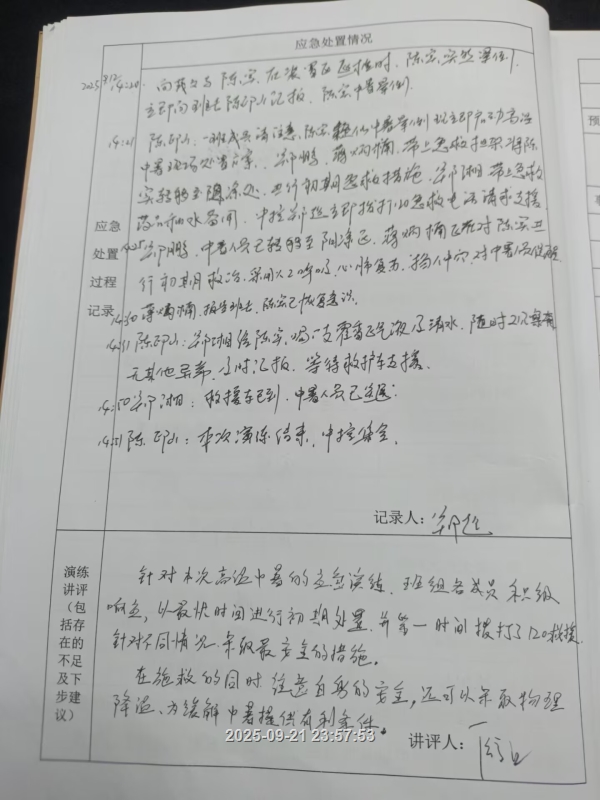 应急处置情况
2025 14:20 向 陈宾 在装置区巡检时，陈宾突然晕倒，
立即向班长陈印山汇报，陈宾中暑晕倒。
陈印山：一班成员请注意，陈宾 中暑晕倒现立即启动高温
中暑现场处置方案，郑鹏、蒋炳楠，带上急救 将陈
宾转移至阴凉处，进行初期急救措施，郑湘带上急救
药品和水备用，中控郑 立即拨打120急救电话请求支援
应急
处置
过程
记录
14:25 郑鹏，中暑人员已转移至阴凉区，蒋炳楠正在对陈宾进
行初期急救，采用人工呼吸，心肺复苏，掐人中穴，对中暑人员
14:30 蒋炳楠，报告班长，陈宾已恢复意识。
14:31 陈印山：郑湘给陈宾喝一支藿香正气液及清水，随时
无其他 ，及时汇报，等待救护车支援。
14:50 郑湘：救援车已到，中暑人员已送医。
14:51 陈印山：本次演练结束，中控 。
记录人：郑
演练
讲评
（包
括存
在的
不足
及下
步建
议）
针对本次高温中暑的应急演练，班组各成员积极
响应，以最快时间进行初期处置，并第一时间拨打了120救援
针对不同情况采取最安全的措施。
在施救的同时注意自身的安全，还可以采取物理
降温，为缓解中暑提供有利条件。
讲评人：
2025-09-21 23:57:53
预